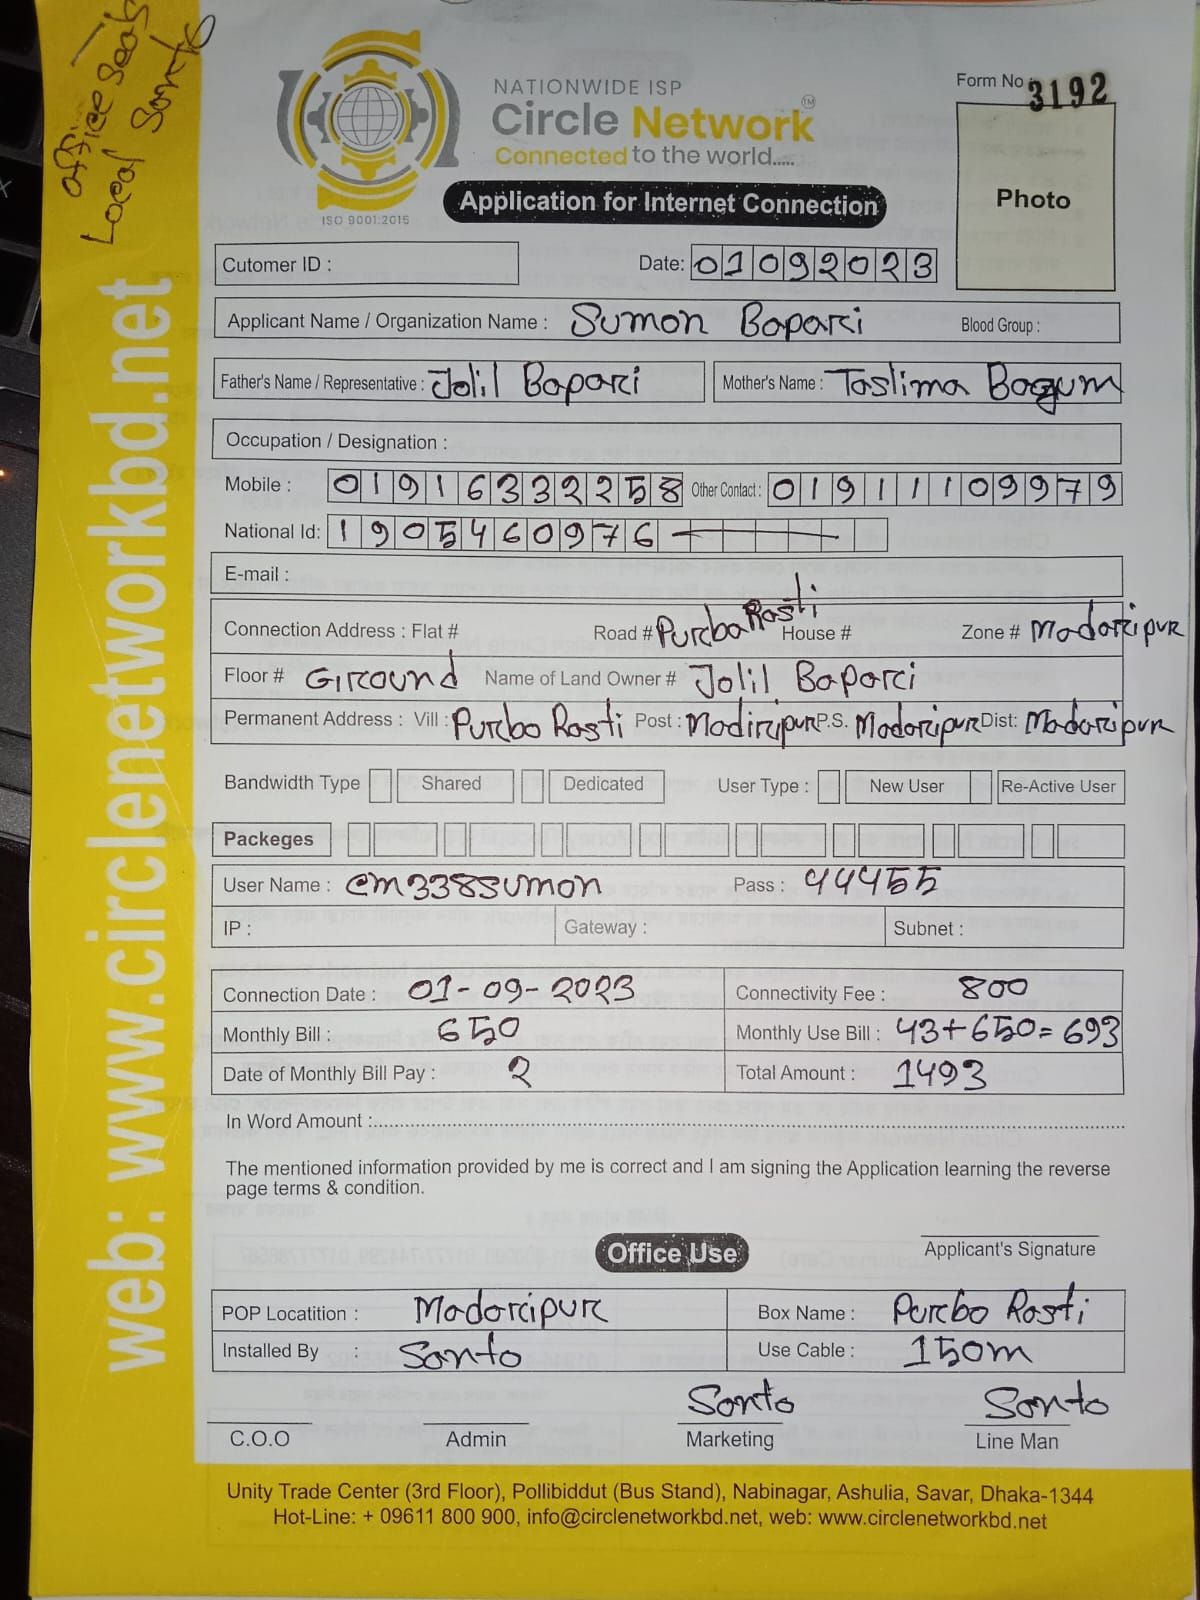 office Seal
Local Sonto
NATIONWIDE ISP
Circle Network TM
Connected to the world.....
ISO 9001:2015
Form No 3192
Photo
Application for Internet Connection
Cutomer ID :
Date: 01092023
Applicant Name / Organization Name : Sumon Bapari Blood Group :
Father's Name / Representative : Jolil Bapari Mother's Name : Taslima Bagum
Occupation / Designation :
Mobile : 01916332258 Other Contact : 01911109979
National Id: 1905460976
E-mail :
Connection Address : Flat # Road # Purba Rasti House # Zone # Madaripur
Floor # Ground Name of Land Owner # Jolil Bapari
Permanent Address : Vill : Purbo Rasti Post : Madiripur P.S. Madaripur Dist: Madaripur
Bandwidth Type Shared Dedicated User Type : New User Re-Active User
Packeges
User Name : cm338sumon Pass : 44455
IP : Gateway : Subnet :
Connection Date : 01-09-2023 Connectivity Fee : 800
Monthly Bill : 650 Monthly Use Bill : 43+650=693
Date of Monthly Bill Pay : 2 Total Amount : 1493
In Word Amount :
The mentioned information provided by me is correct and I am signing the Application learning the reverse
page terms & condition.
Applicant's Signature
Office Use
POP Locatition : Madaripur Box Name : Purbo Rasti
Installed By : Sonto Use Cable : 150m
Sonto Sonto
C.O.O Admin Marketing Line Man
Unity Trade Center (3rd Floor), Pollibiddut (Bus Stand), Nabinagar, Ashulia, Savar, Dhaka-1344
Hot-Line: + 09611 800 900, info@circlenetworkbd.net, web: www.circlenetworkbd.net
web: www.circlenetworkbd.net